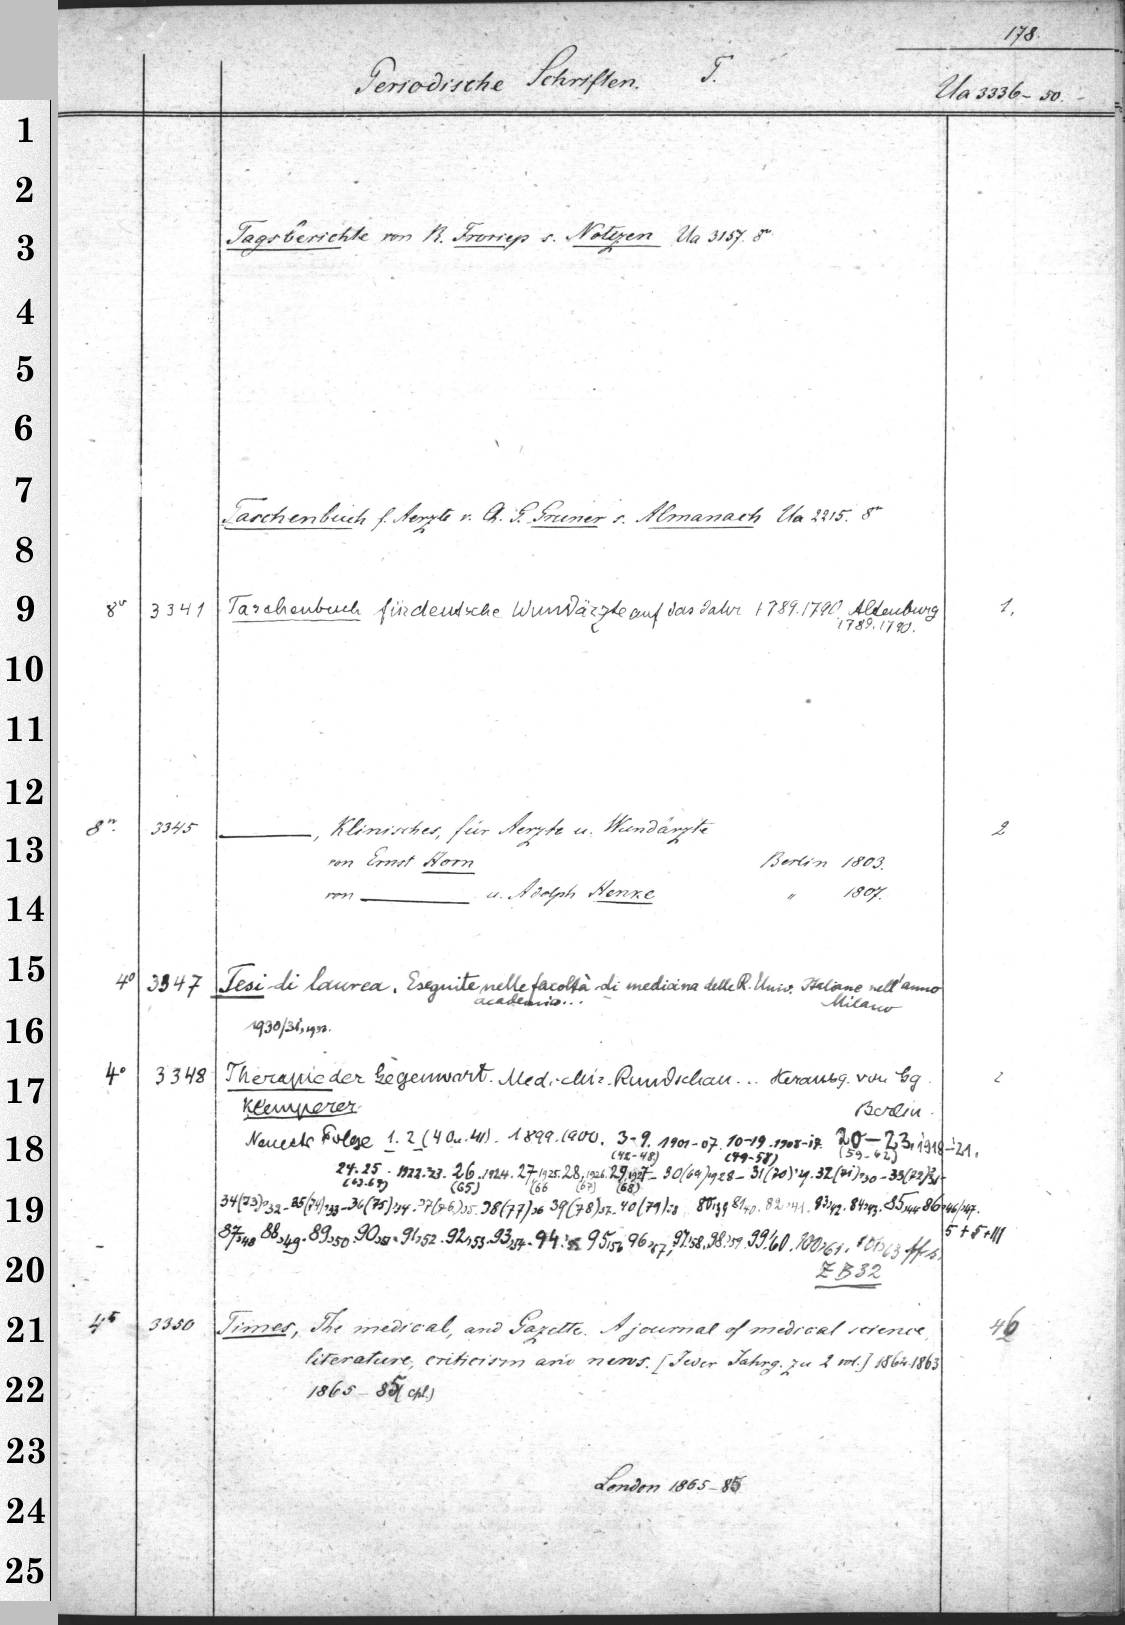 178.
Periodische Schriften. T.
Ua 3336-50.
1
2
3 Tagsberichte von R. Froriep s. Notizen Ua 3157. 8°
4
5
6
7
Taschenbuch f. Aerzte v. Ch. G. Gruner s. Almanach Ua 2215. 8°
8
9 8° 3341 Taschenbuch für deutsche Wundärzte auf das Jahr 1789.1790. Altenburg 1.
1789.1790.
10
11
12
8° 3345 ———, Klinisches, für Aerzte u. Wundärzte 2
13 von Ernst Horn Berlin 1803.
14 von ——— u. Adolph Henke „ 1807.
15 4° 3347 Tesi di laurea. Eseguite nelle facoltà di medicina delle R. Univ. Italiane nell'anno
academico... Milano
16 1930/31,
17 4° 3348 Therapie der Gegenwart. Mediz.-chir. Rundschau... Herausg. von Gg. 2
Klemperer Berlin.
18 Neueste Folge 1. 2 (40 u. 41). 1899.1900. 3-9. 1901-07. 10-19. 1908-17. 20-23. 1918-'21.
(42-48) (49-58) (59-62)
24.25. 1922.'23. 26. 1924. 27, 1925. 28, 1926. 29, 1927- 30(69) 1928- 31(70) 32(71) 30- 33(72) 31-
(63.64) (65) (66 (67) (68)
19 34(73) 32- 35(74) 33- 36(75) 34. 37(76) 35. 38(77) 36 39(78) 37. 40(79) 38. 80, 39 81, 40. 82, 41. 83, 42. 84, 43. 85, 44 86, 46/47.
87, 48 88, 49. 89, 50. 90, 51. 91, 52. 92, 53. 93, 54. 94. 95, 56 96, 57, 97, 58. 98, 59. 99, 60. 100, 61. 101, 63 ff s. 5+8+III
20 ZB 32
21 4° 3350 Times, The medical, and Gazette. A journal of medical science, 46
literature, criticism and news. [Jeder Jahrg. zu 2 vol.] 1864.1863
22 1865-85
23
London 1865-85
24
25